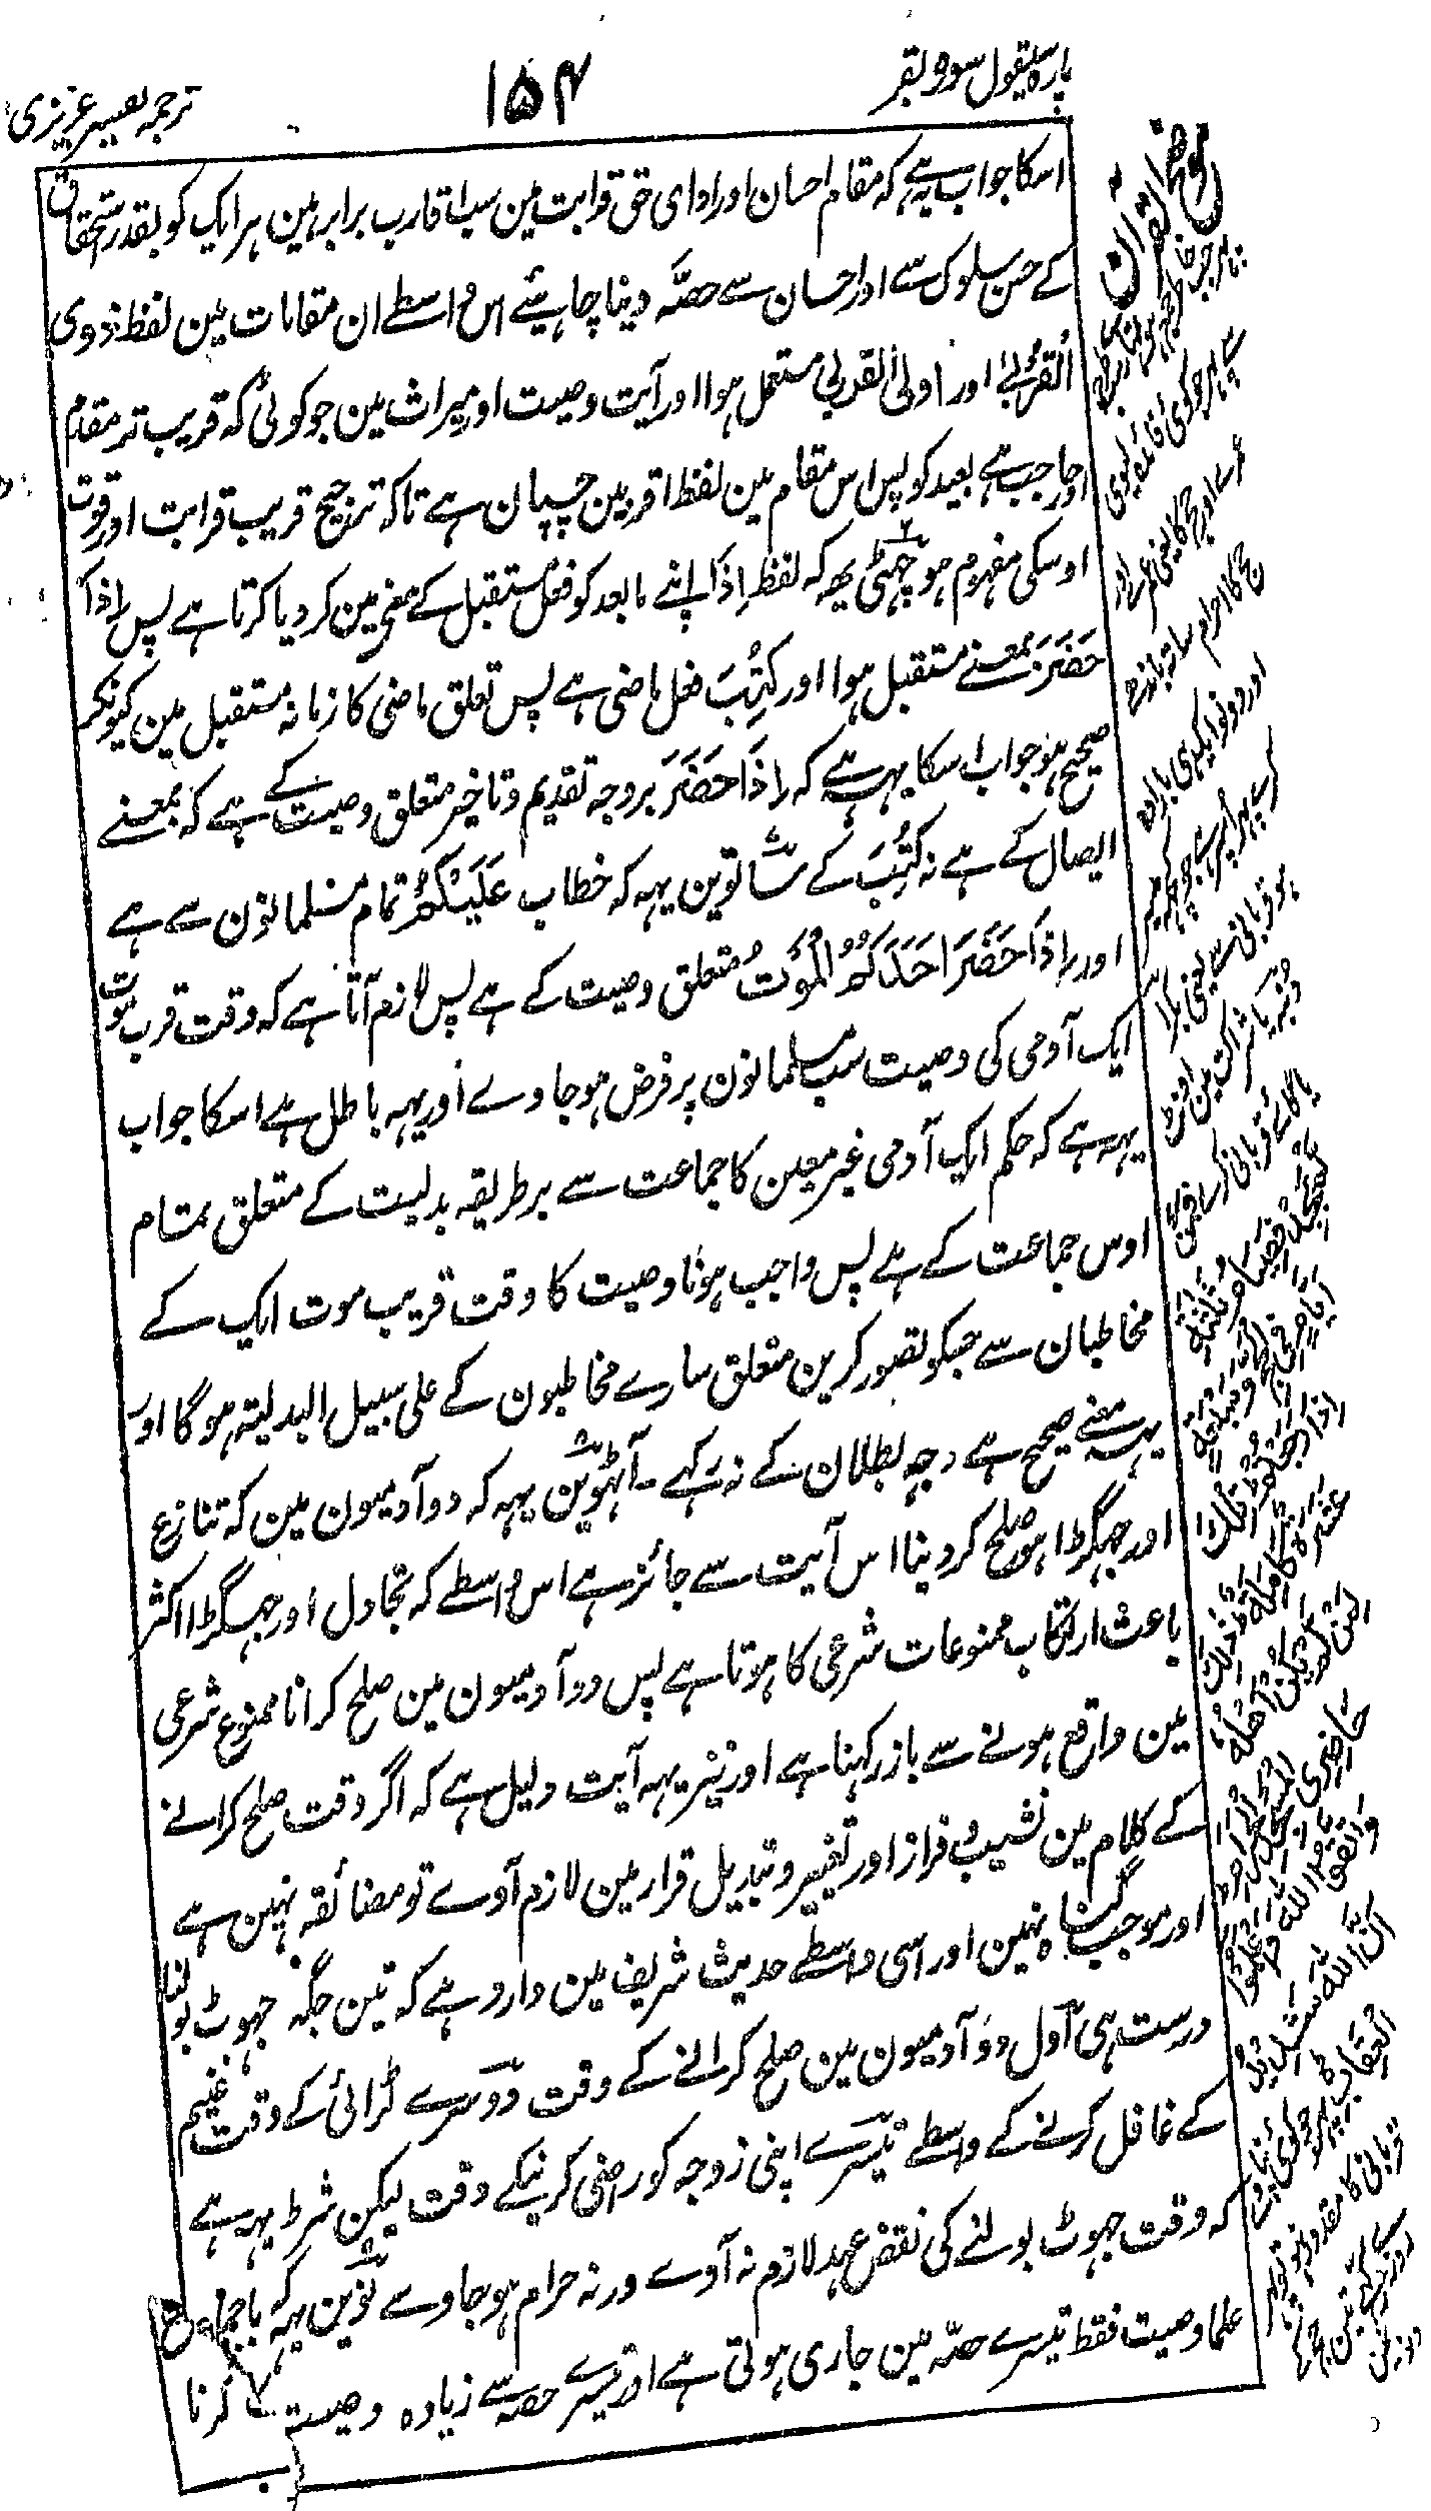 پارہ سیقول سورہ بقر
۱۵۴
ترجمہ تفسیر عزیزی
اسکا جواب یہ ہے کہ مقام احسان اور ادای حق قرابت مین سب اقارب برابر ہین ہر ایک کو بقدر استحقاق
کے حسن سلوک سے اور احسان سے حصّہ دینا چاہیئے اس واسطے ان مقامات مین لفظ ذوی
القربیٰ اور اولی القربی مستعمل ہوا اور آیت وصیت اور میراث مین جو کوئی کہ قریب تر مقدم
اور حاجب ہے بعید کو پس اس مقام مین لفظ اقربین چسپان ہے تاکہ ترجیح قریب قرابت اور قوت
اوسکی مفہوم ہو چھٹی یہ کہ لفظ اِذَا اپنے مابعد کو فعل مستقبل کے معنی مین کر دیا کرتا ہے پس اِذَا
حَضَرَ بمعنے مستقبل ہوا اور کُتِبَ فعل ماضی ہے پس تعلق ماضی کا زمانہ مستقبل مین کیونکر
صحیح ہو جواب اسکا یہہ ہے کہ اِذَا حَضَرَ بروجہ تقدیم و تاخیر متعلق وصیت کے ہے کہ بمعنے
ایصال کے ہے نہ کُتِبَ کے ساتوین یہہ کہ خطاب عَلَیْکُمْ تمام مسلمانون سے ہے
اور اِذَا حَضَرَ اَحَدَکُمُ الْمَوْتُ متعلق وصیت کے ہے پس لازم آتا ہے کہ وقت قرب موت
ایک آدمی کی وصیت سب مسلمانون پر فرض ہو جاوے اور یہہ باطل ہے اسکا جواب
یہہ ہے کہ حکم ایک آدمی غیر معین کا جماعت سے بر طریقہ بدلیت کے متعلق تمام
اوس جماعت کے ہے پس واجب ہونا وصیت کا وقت قریب موت ایک کے
مخاطبان سے جسکو تصور کرین متعلق سارے مخاطبون کے علی سبیل البدلیتہ ہوگا اور
یہہ معنے صحیح ہے وجہ بطلان کے نہ رکھے ۔ آٹھوین یہہ کہ دو آدمیون مین کہ تنازع
اور جھگڑا ہو صلح کر دینا اس آیت سے جائز ہے اس واسطے کہ تجادل اور جھگڑا اکثر
باعث ارتکاب ممنوعات شرعی کا ہوتا ہے پس دو آدمیون مین صلح کرانا ممنوع شرعی
مین واقع ہونے سے باز رکہنا ہے اور نیز یہہ آیت دلیل ہے کہ اگر وقت صلح کرانے
کے کلام مین نشیب و فراز اور تغییر و تبدیل قرار مین لازم آوے تو مضائقہ نہین ہے
اور موجب گناہ نہین اور اسی واسطے حدیث شریف مین وارد ہے کہ تین جگہ جھوٹ بولنا
درست ہی اول دو آدمیون مین صلح کرانے کے وقت دوسرے لڑائی کے وقت غنیم
کے غافل کرنے کے واسطے تیسرے اپنی زوجہ کو راضی کرنیکے وقت لیکن شرط یہہ ہے
کہ وقت جھوٹ بولنے کی نقض عہد لازم نہ آوے ورنہ حرام ہو جاوے نوین یہہ کہ باجماع
علما وصیت فقط تیسرے حصّہ مین جاری ہوتی ہے اور تیسرے حصہ سے زیادہ وصیت کرنا
حج کا احرام ساتھ باندھے
عَشَرَةٌ كَامِلَةٌ ذٰلِكَ
لِمَنْ لَمْ يَكُنْ اَهْلُهُ
حَاضِرِي الْمَسْجِدِ الْحَرَامِ
وَاتَّقُوا اللّٰهَ وَاعْلَمُوا
اَنَّ اللّٰهَ شَدِيدُ
الْعِقَابِ